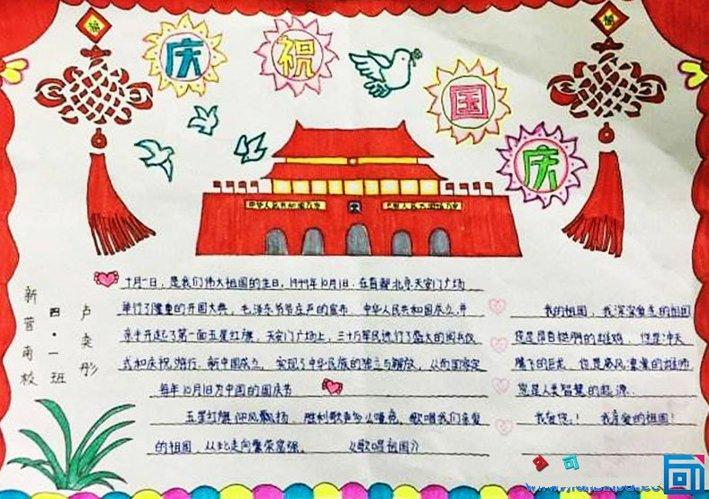 庆祝国庆
新营南校
四·一班
卢奕彤
十月一日，是我们伟大祖国的生日，1949年10月1日，在首都北京天安门广场
举行了隆重的开国大典，毛泽东爷爷庄严的宣布，中华人民共和国成立，并
亲手升起了第一面五星红旗，天安门广场上，三十万军民进行了盛大的阅兵仪
式和庆祝游行，新中国成立，实现了中华民族的独立与解放，从而国家定
每年10月1日为中国的国庆节
五星红旗迎风飘扬，胜利歌声多么嘹亮，歌唱我们亲爱
的祖国，从此走向繁荣富强。《歌唱祖国》
我的祖国，我深深爱恋的祖国
您是昂首挺胸的雄鸡，您是冲天
腾飞的巨龙，您是威风凛凛的雄狮
您是人类智慧的起源
我爱您！我亲爱的祖国！